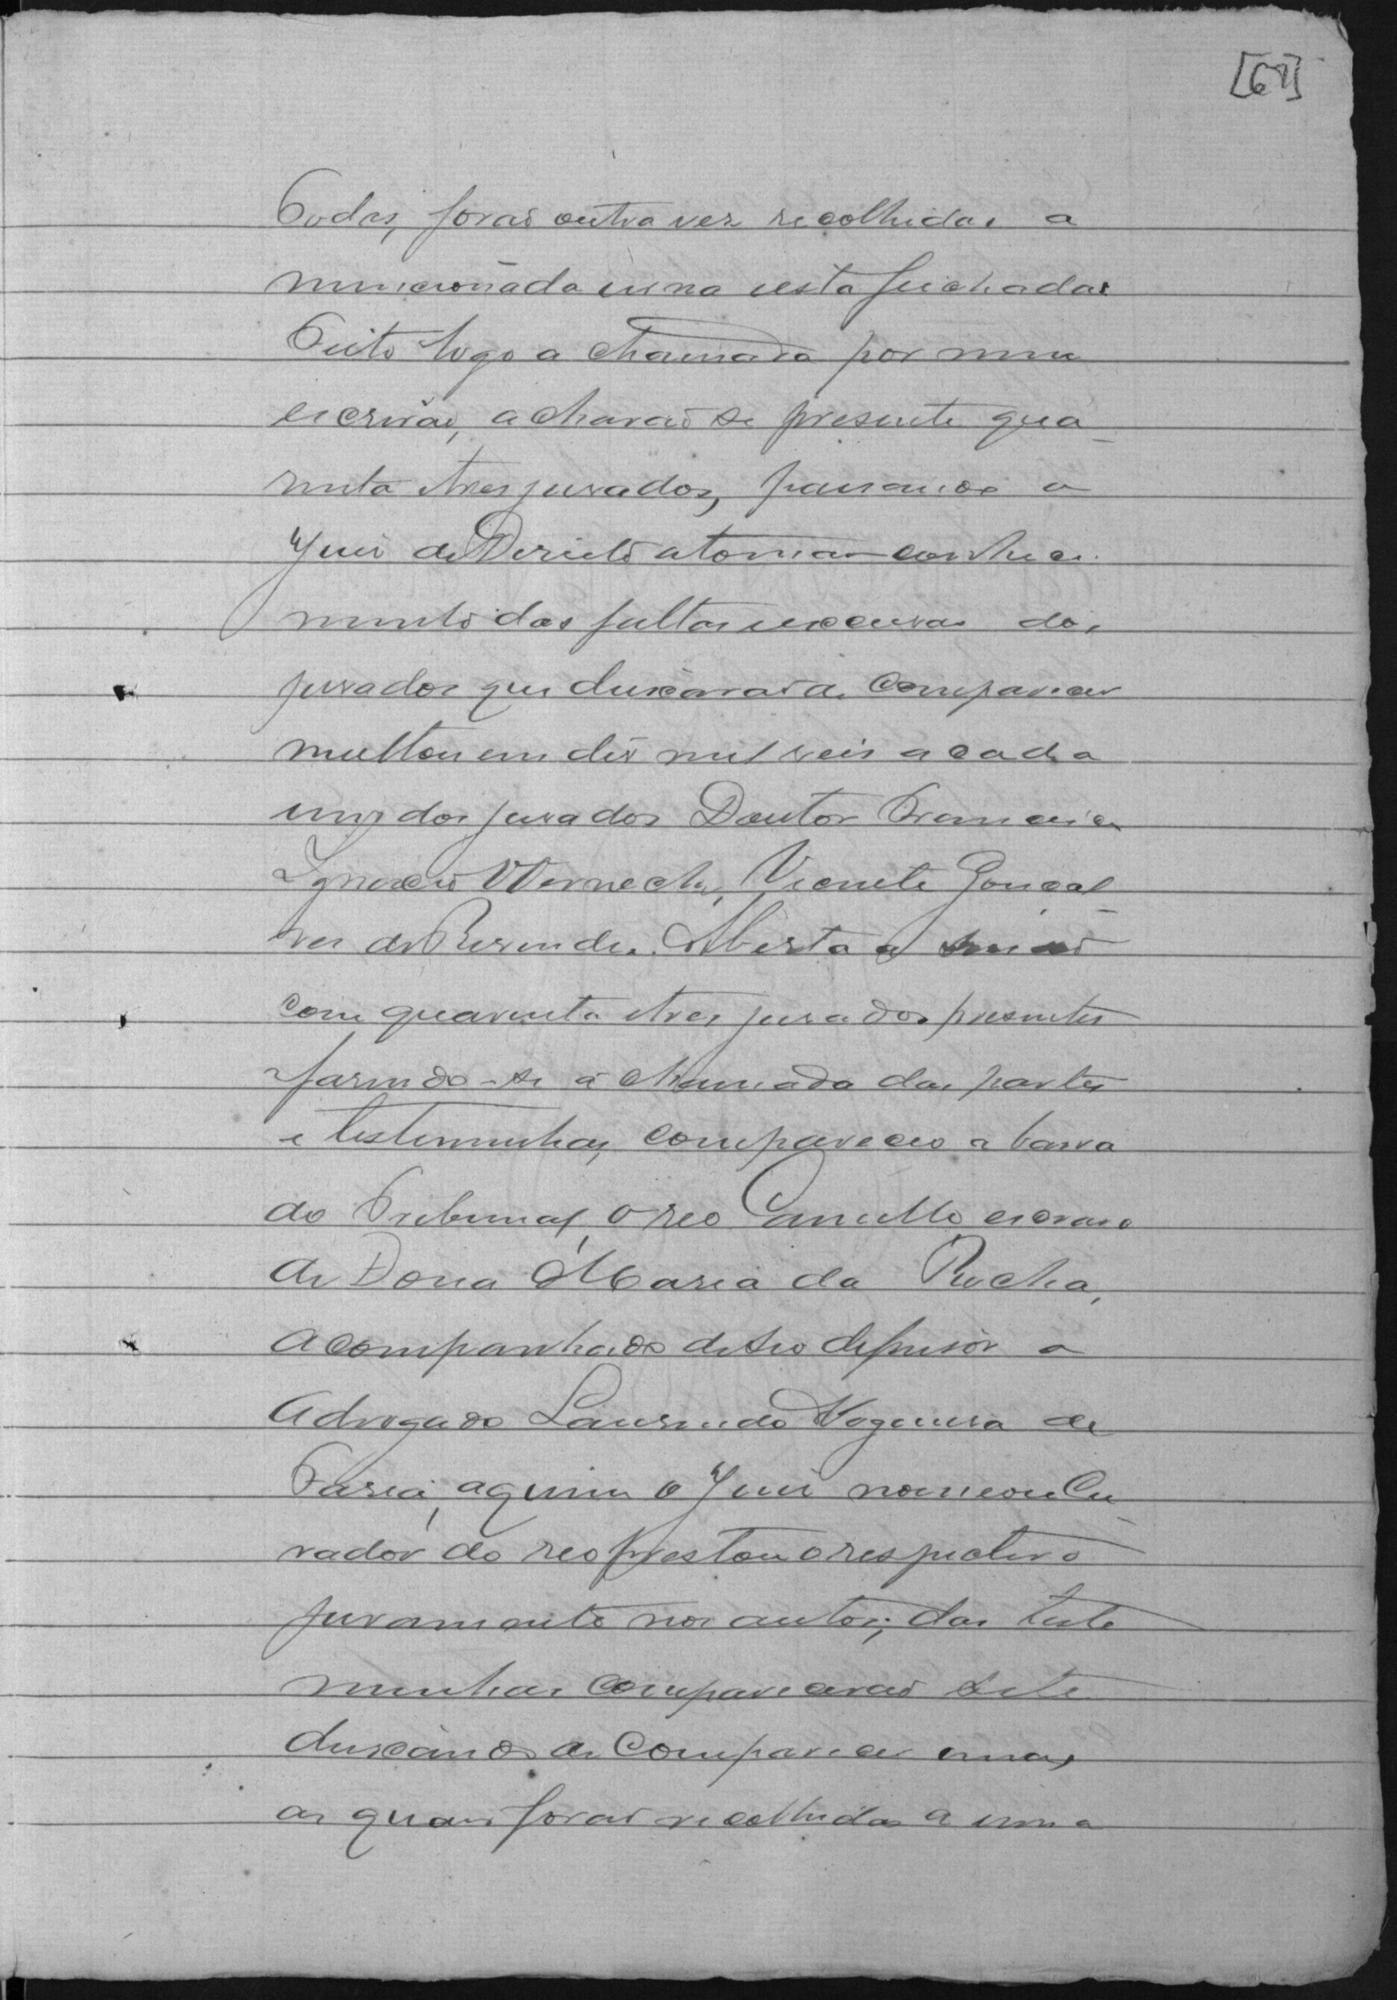 [67]
Todas, forão outra vez recolhidas a
mencionada urna e esta fichadas
Feito logo a chamada por mim
escrivão, acharão se presente qua-
renta e tres jurados, passando o
Juis de Direito a tomar conheci
mento das faltas e escusas dos
jurados que deixarão de comparecer
multou em dés mil reis a cada
um dos jurados Doutor Francisco
Ignacio Werneck, Vicente Gonçal-
ves de Resende. Aberta a sessão
com quarenta e tres jurados presentes
fasendo-se a chamada das partes
e testemunhas, compareceo a barra
do Tribunal, o reo Camillo escravo
de Dona Maria da Rocha,
acompanhado de seo defensor o
Advogado Laurindo Nogueira de
Faria, a quem o Juis nomeou Cu-
rador do reo prestou o respectivo
juramento nos autos; das teste
munhas comparecerão sete
deixando de comparecer uma,
as quais forão recolhidas a uma